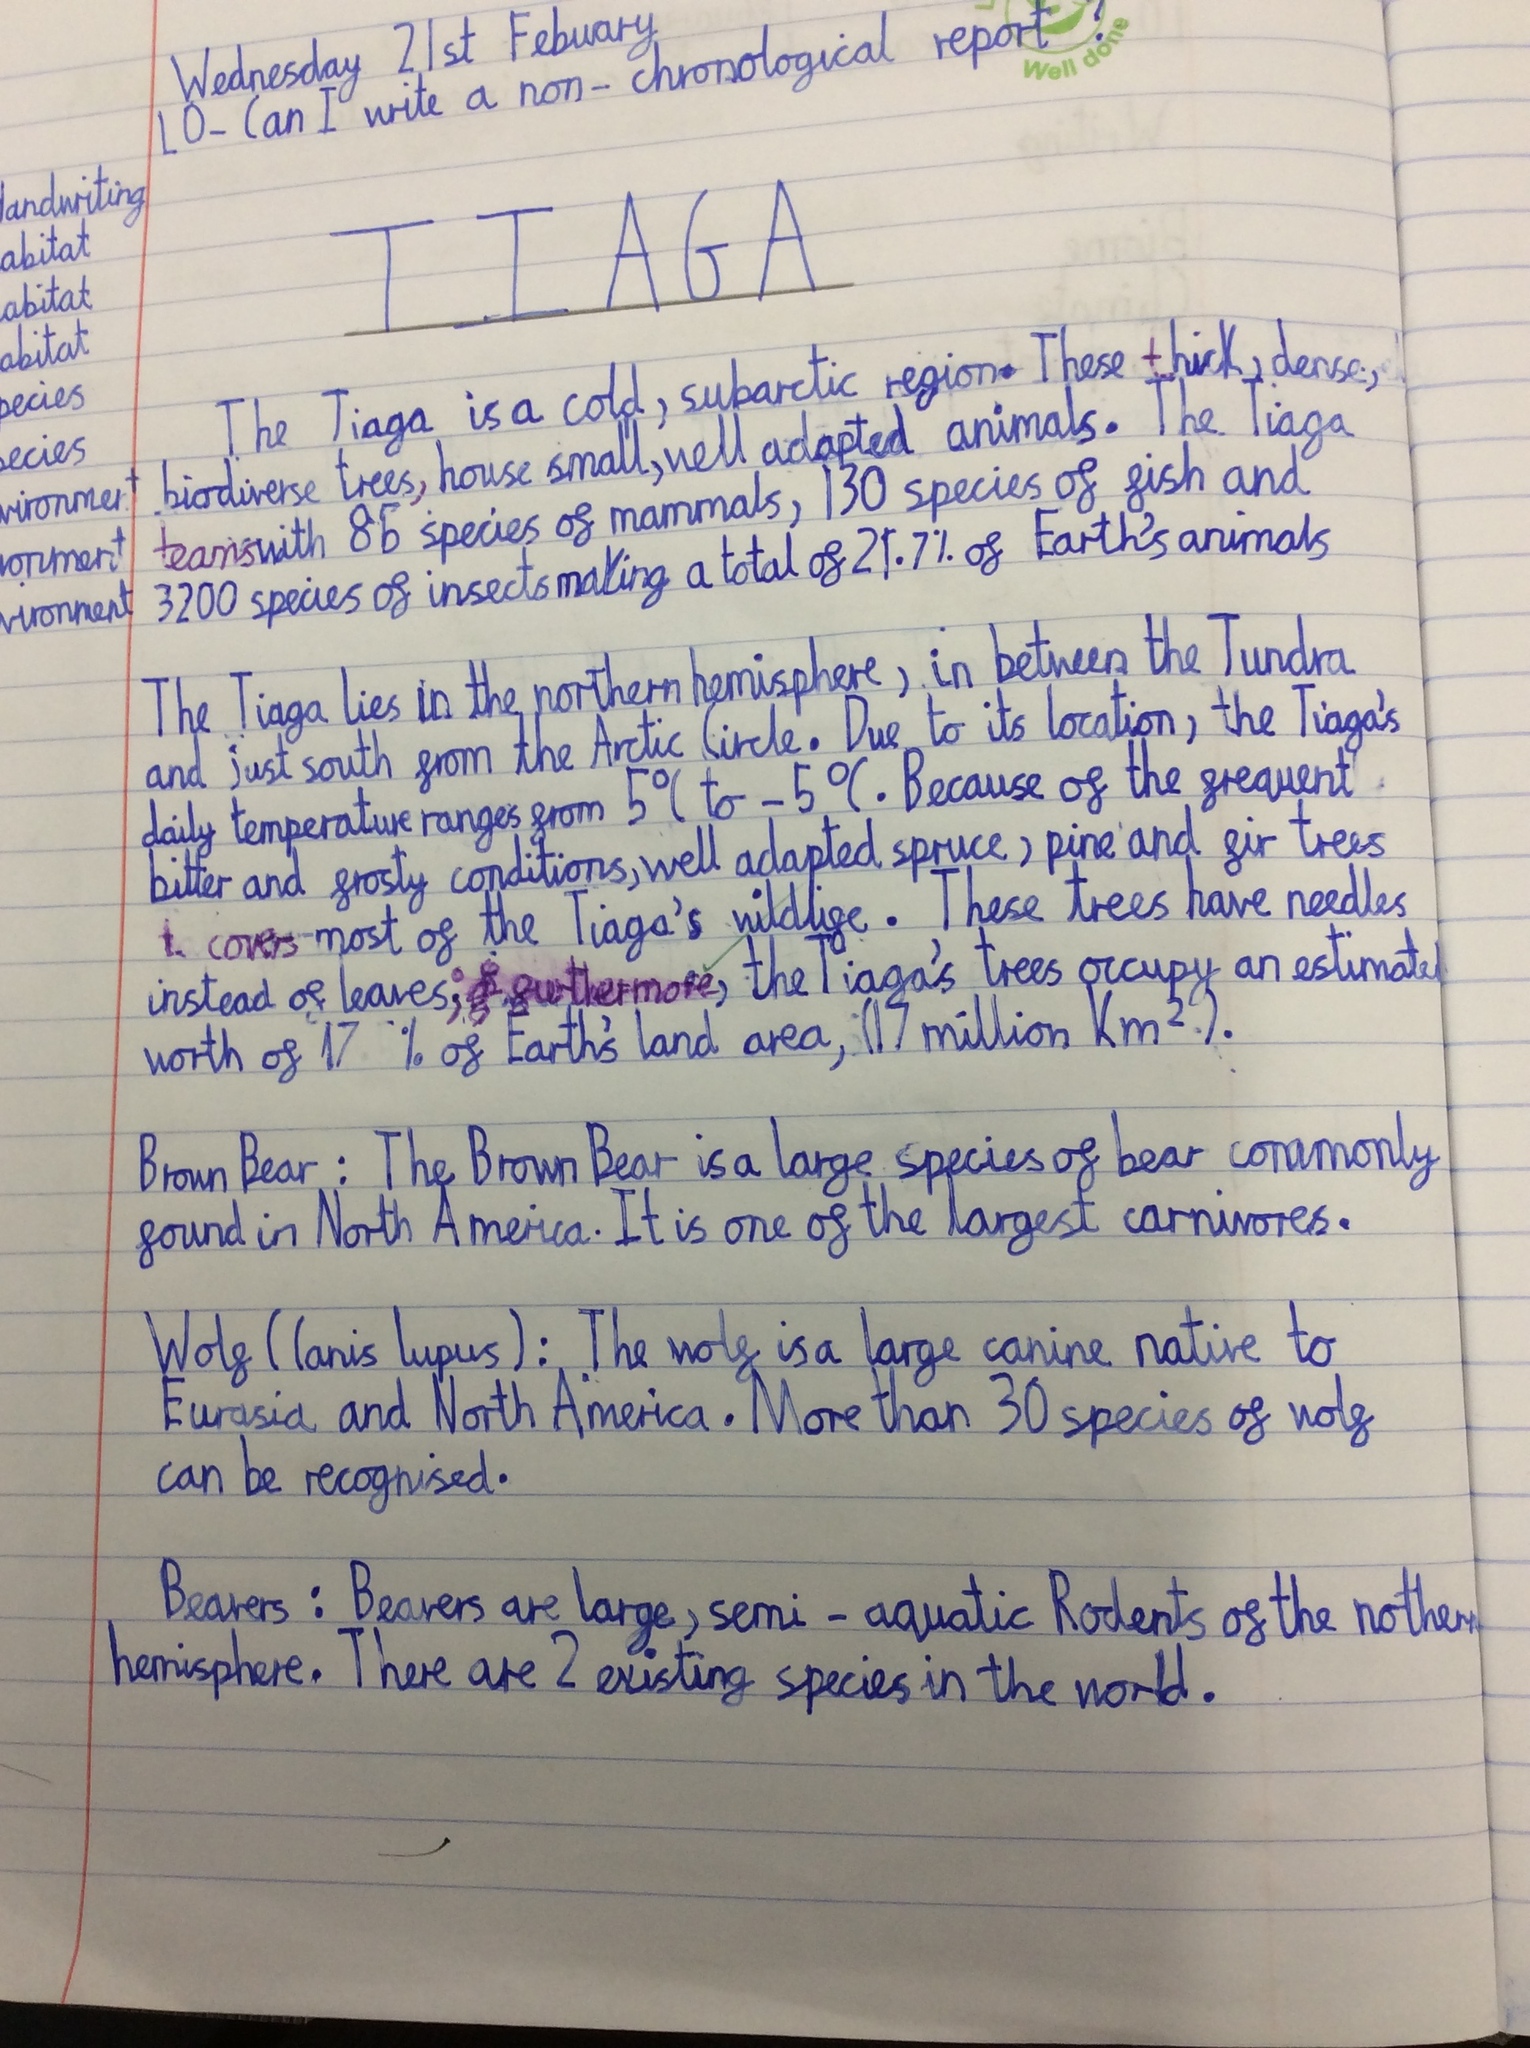 Wednesday 21st Febuary
LO- Can I write a non- chronological report?
Well done
TIAGA
Handwriting
abitat
abitat
abitat
pecies
pecies
vironment
vironment
vironment
The Tiaga is a cold, subarctic region. These thick, dense,
biodiverse trees, house small, well adapted animals. The Tiaga
teams with 85 species of mammals, 130 species of fish and
3200 species of insects making a total of 21.7% of Earth's animals
The Tiaga lies in the northern hemisphere, in between the Tundra
and just south from the Arctic Circle. Due to its location, the Tiaga's
daily temperature ranges from 5°C to -5°C. Because of the frequent
bitter and frosty conditions, well adapted spruce, pine and fir trees
covers most of the Tiaga's wildlife. These trees have needles
instead of leaves; furthermore, the Tiaga's trees occupy an estimated
worth of 17 % of Earth's land area, (17 million Km²).
Brown Bear : The Brown Bear is a large species of bear commonly
found in North America. It is one of the largest carnivores.
Wolf (Canis lupus): The wolf is a large canine native to
Eurasia and North America. More than 30 species of wolf
can be recognised.
Beavers : Beavers are large, semi - aquatic Rodents of the nothern
hemisphere. There are 2 existing species in the world.